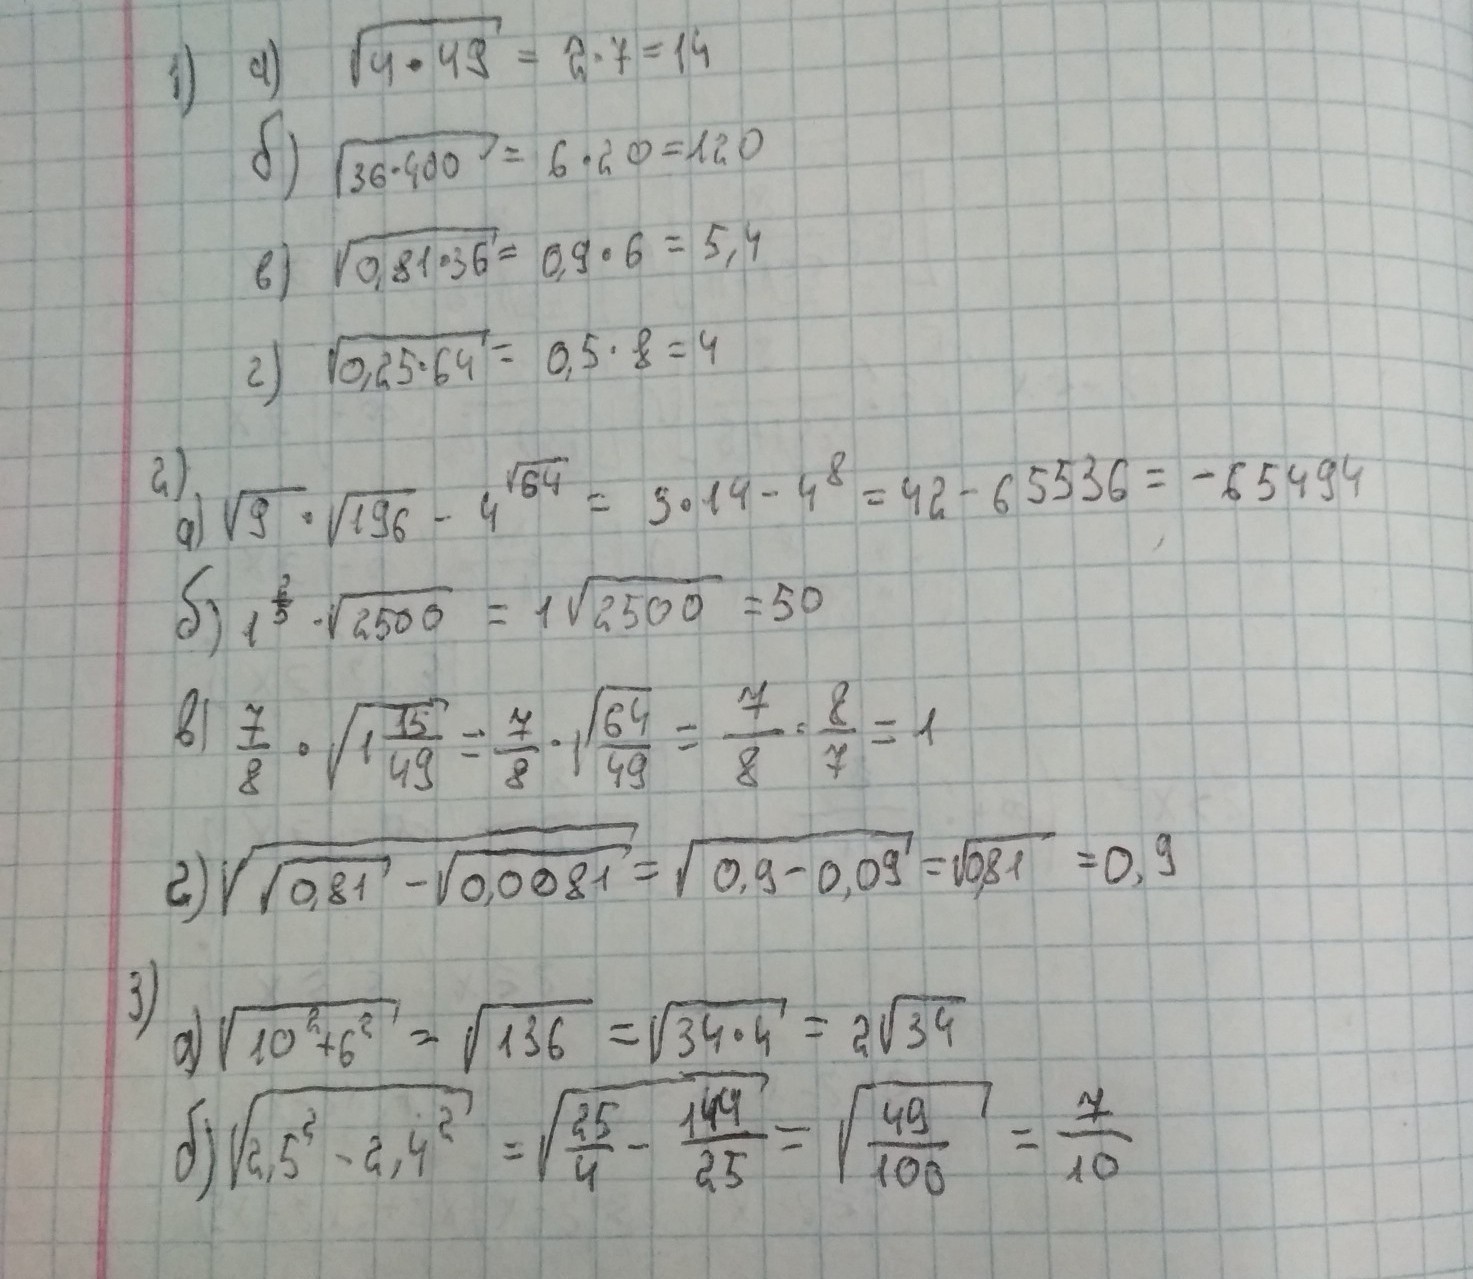 1) а) √4·49 = 2·7=14
б) √36·400 = 6·20=120
в) √0,81·36 = 0,9·6 = 5,4
г) √0,25·64 = 0,5·8=4
2)
а) √9 · √196 - 4^√64 = 3·14 - 4^8 = 42 - 65536 = -65494
б) 1^(2/5) · √2500 = 1√2500 = 50
в) 7/8 · √(1 15/49) = 7/8 · √(64/49) = 7/8 · 8/7 = 1
г) √(√0,81 - √0,0081) = √(0,9-0,09) = √0,81 = 0,9
3)
а) √(10²+6²) = √136 = √34·4 = 2√34
б) √(2,5² - 2,4²) = √(25/4 - 144/25) = √(49/100) = 7/10